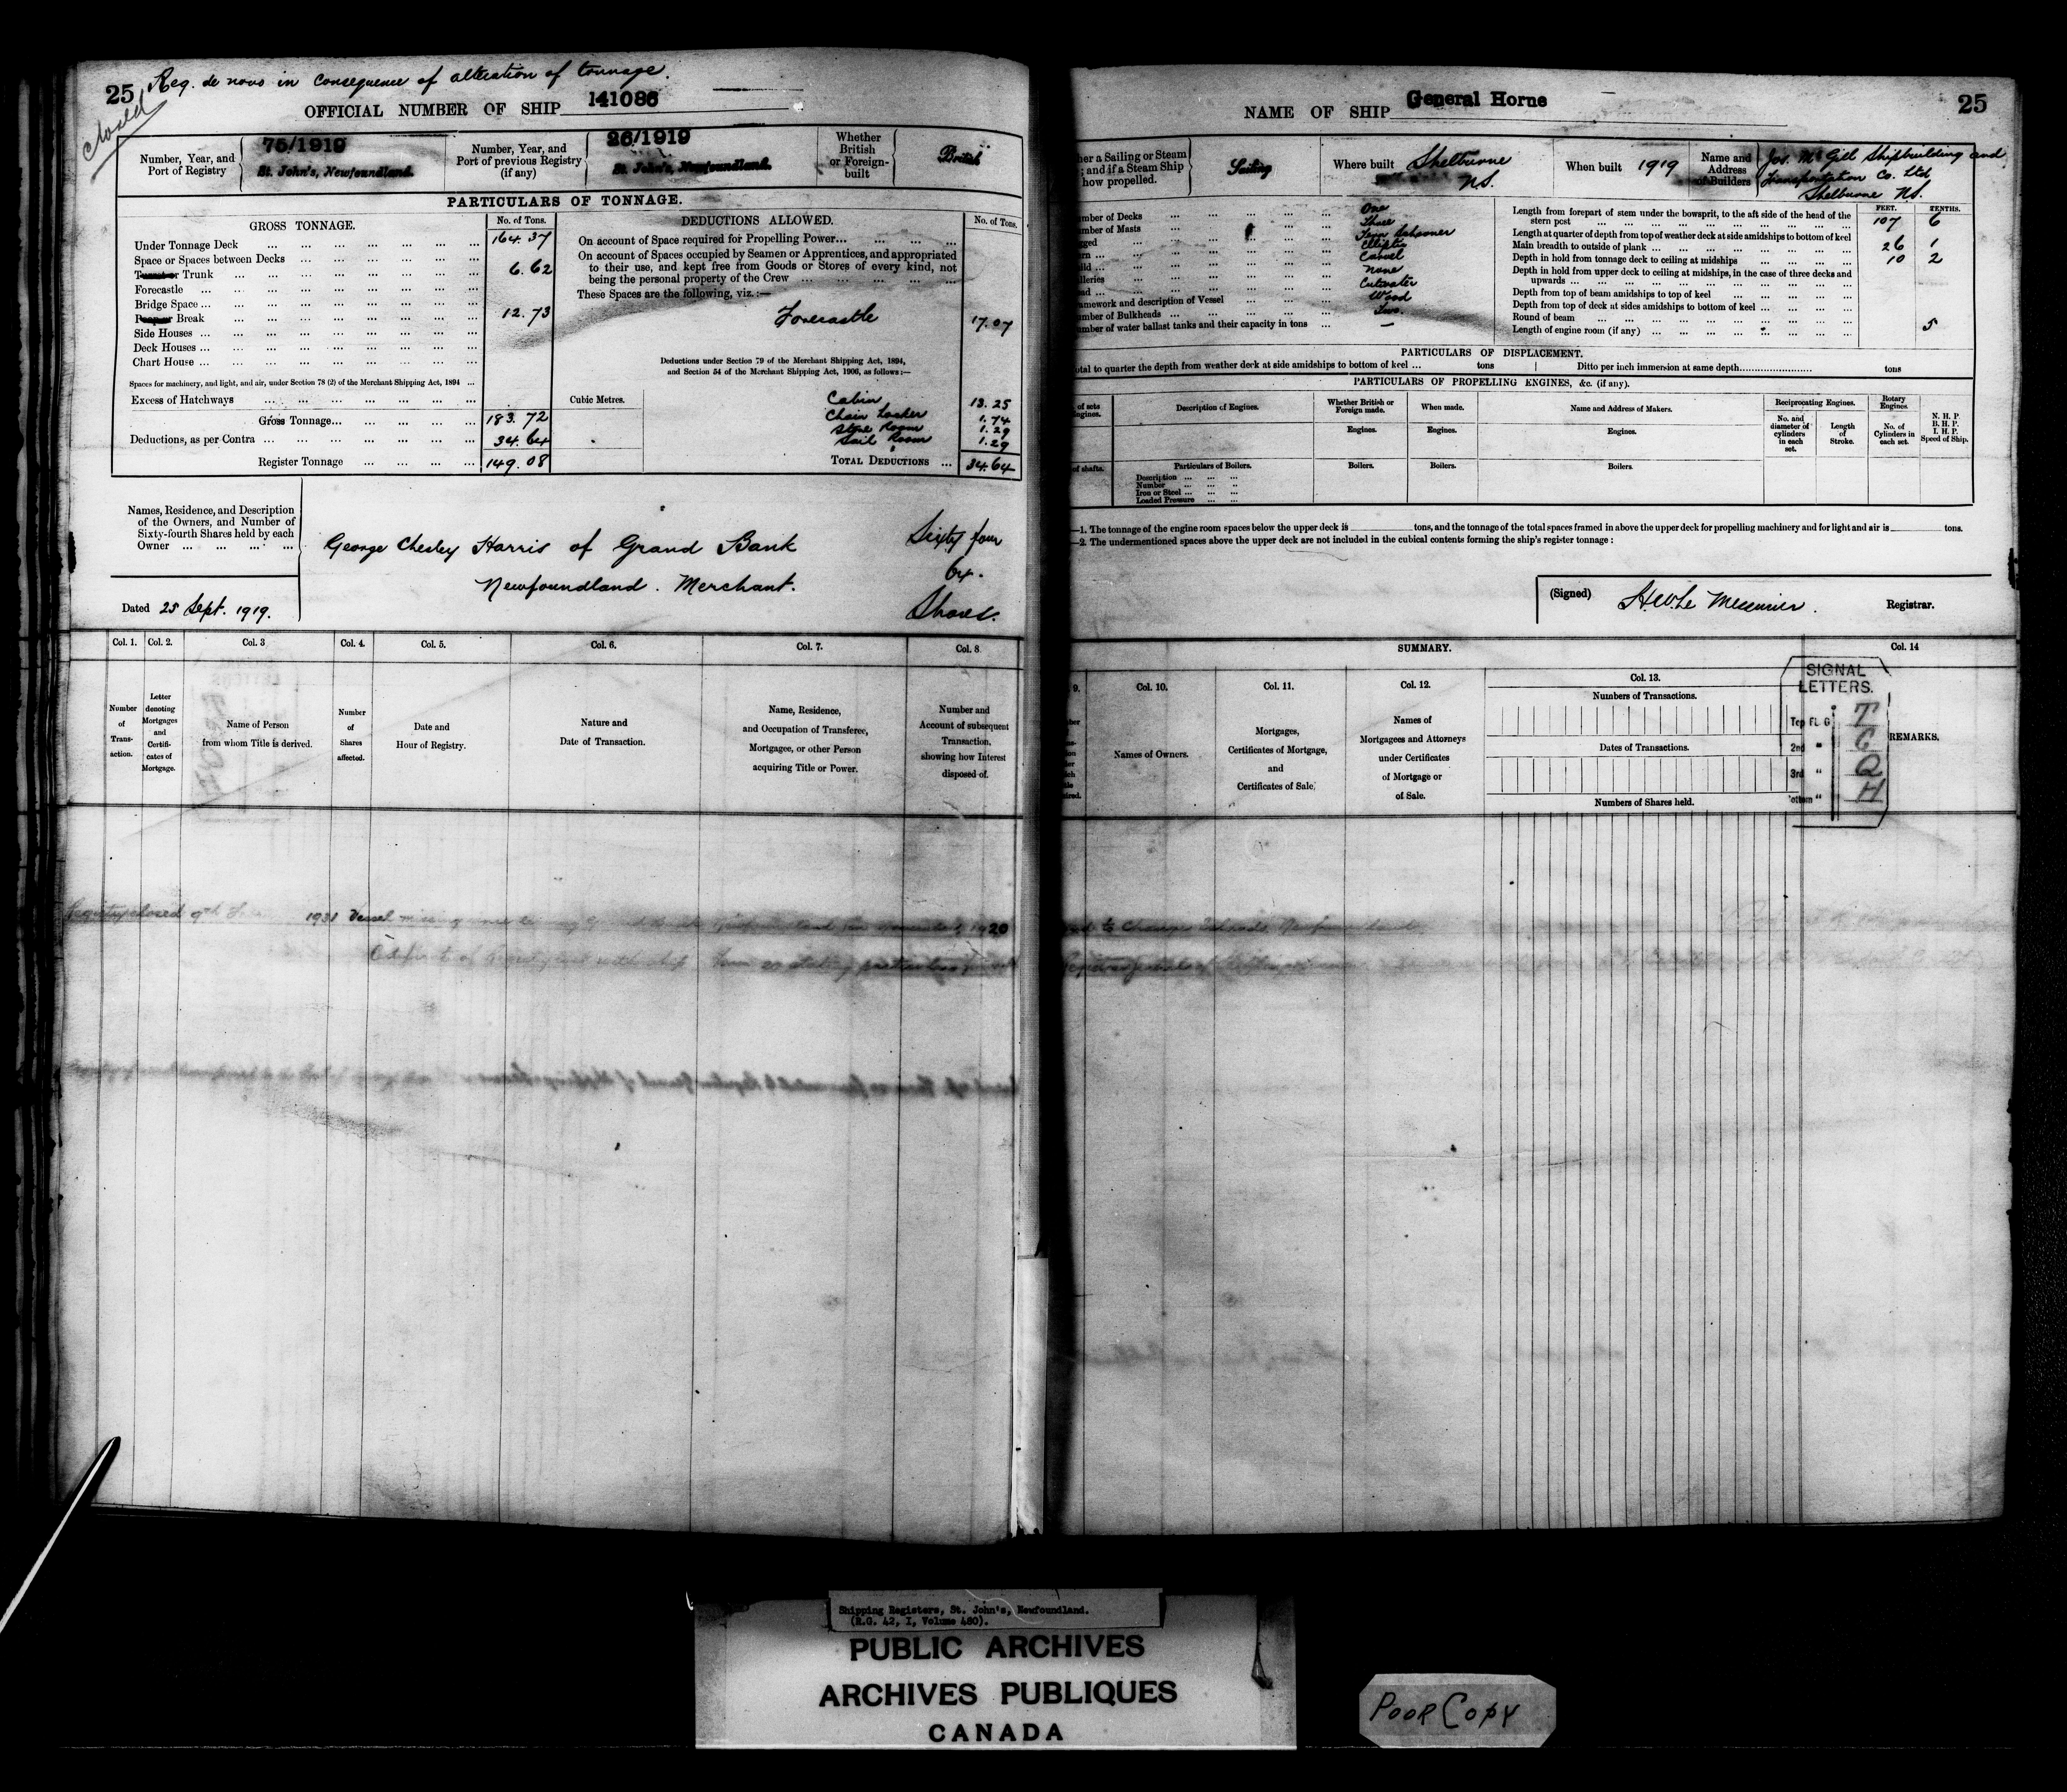 25 Reg. de novo in consequence of alteration of tonnage.
Closed
OFFICIAL NUMBER OF SHIP 141086
Number, Year, and Port of Registry
75/1919
St. John's, Newfoundland.
Number, Year, and Port of previous Registry (if any)
26/1919
St. John's, Newfoundland.
Whether British or Foreign-built
British
PARTICULARS OF TONNAGE.
GROSS TONNAGE.
No. of Tons.
Under Tonnage Deck 164.37
Space or Spaces between Decks
Turret or Trunk 6.62
Forecastle
Bridge Space
Poop or Break 12.73
Side Houses
Deck Houses
Chart House
Spaces for machinery, and light, and air, under Section 78 (2) of the Merchant Shipping Act, 1894
Excess of Hatchways
Gross Tonnage 183.72
Deductions, as per Contra 34.64
Register Tonnage 149.08
DEDUCTIONS ALLOWED.
No. of Tons.
On account of Space required for Propelling Power
On account of Spaces occupied by Seamen or Apprentices, and appropriated
to their use, and kept free from Goods or Stores of every kind, not
being the personal property of the Crew
These Spaces are the following, viz.:—
Forecastle 17.07
Deductions under Section 79 of the Merchant Shipping Act, 1894,
and Section 54 of the Merchant Shipping Act, 1906, as follows:—
Cubic Metres.
Cabin 13.25
Chain Locker 1.74
Store Room 1.29
Sail Room 1.29
TOTAL DEDUCTIONS 34.64
Names, Residence, and Description
of the Owners, and Number of
Sixty-fourth Shares held by each
Owner
George Chesley Harris of Grand Bank
Newfoundland. Merchant.
Sixty four
64.
Shares.
Dated 25 Sept. 1919.
Col. 1.
Col. 2.
Col. 3
Col. 4.
Col. 5.
Col. 6.
Col. 7.
Col. 8
Number of Transaction.
Letter denoting Mortgages and Certificates of Mortgage.
Name of Person from whom Title is derived.
Number of Shares affected.
Date and Hour of Registry.
Nature and Date of Transaction.
Name, Residence, and Occupation of Transferee, Mortgagee, or other Person acquiring Title or Power.
Number and Account of subsequent Transaction, showing how Interest disposed of.
Registry closed 9th 1931 Vessel missing since leaving Grand Bank 1920
Certificate of Registry
NAME OF SHIP General Horne 25
her a Sailing or Steam
; and if a Steam Ship
how propelled.
Sailing
Where built
Shelburne
NS.
When built 1919
Name and Address of Builders
Jos. McGill Shipbuilding and
Transportation Co. Ltd
Shelburne NS.
mber of Decks One
umber of Masts Three
gged Tern Schooner
rn Elliptic
ild Carvel
lleries None
ead Cutwater
amework and description of Vessel Wood
umber of Bulkheads Two.
umber of water ballast tanks and their capacity in tons —
FEET. TENTHS.
Length from forepart of stem under the bowsprit, to the aft side of the head of the
stern post 107 6
Length at quarter of depth from top of weather deck at side amidships to bottom of keel
Main breadth to outside of plank 26 1
Depth in hold from tonnage deck to ceiling at midships 10 2
Depth in hold from upper deck to ceiling at midships, in the case of three decks and
upwards
Depth from top of beam amidships to top of keel
Depth from top of deck at sides amidships to bottom of keel
Round of beam 5
Length of engine room (if any)
PARTICULARS OF DISPLACEMENT.
otal to quarter the depth from weather deck at side amidships to bottom of keel ... tons
Ditto per inch immersion at same depth tons
PARTICULARS OF PROPELLING ENGINES, &c. (if any).
of sets
Engines.
Description of Engines.
Whether British or Foreign made.
When made.
Name and Address of Makers.
Reciprocating Engines.
Rotary Engines.
N. H. P.
B. H. P.
I. H. P.
Speed of Ship.
Engines.
Engines.
Engines.
No. and diameter of cylinders in each set.
Length of Stroke.
No. of Cylinders in each set.
of shafts.
Particulars of Boilers.
Boilers.
Boilers.
Boilers.
Description
Number
Iron or Steel
Loaded Pressure
—1. The tonnage of the engine room spaces below the upper deck is tons, and the tonnage of the total spaces framed in above the upper deck for propelling machinery and for light and air is tons.
—2. The undermentioned spaces above the upper deck are not included in the cubical contents forming the ship's register tonnage :
(Signed) Registrar.
SUMMARY.
9.
Col. 10.
Col. 11.
Col. 12.
Col. 13.
Col. 14
Names of Owners.
Mortgages, Certificates of Mortgage, and Certificates of Sale.
Names of Mortgagees and Attorneys under Certificates of Mortgage or of Sale.
Numbers of Transactions.
Dates of Transactions.
Numbers of Shares held.
REMARKS.
SIGNAL
LETTERS.
Top FLG T
2nd " C
3rd " Q
Bottom " H
Shipping Registers, St. John's, Newfoundland.
(R.G. 42, I, Volume 480).
PUBLIC ARCHIVES
ARCHIVES PUBLIQUES
CANADA
POOR COPY